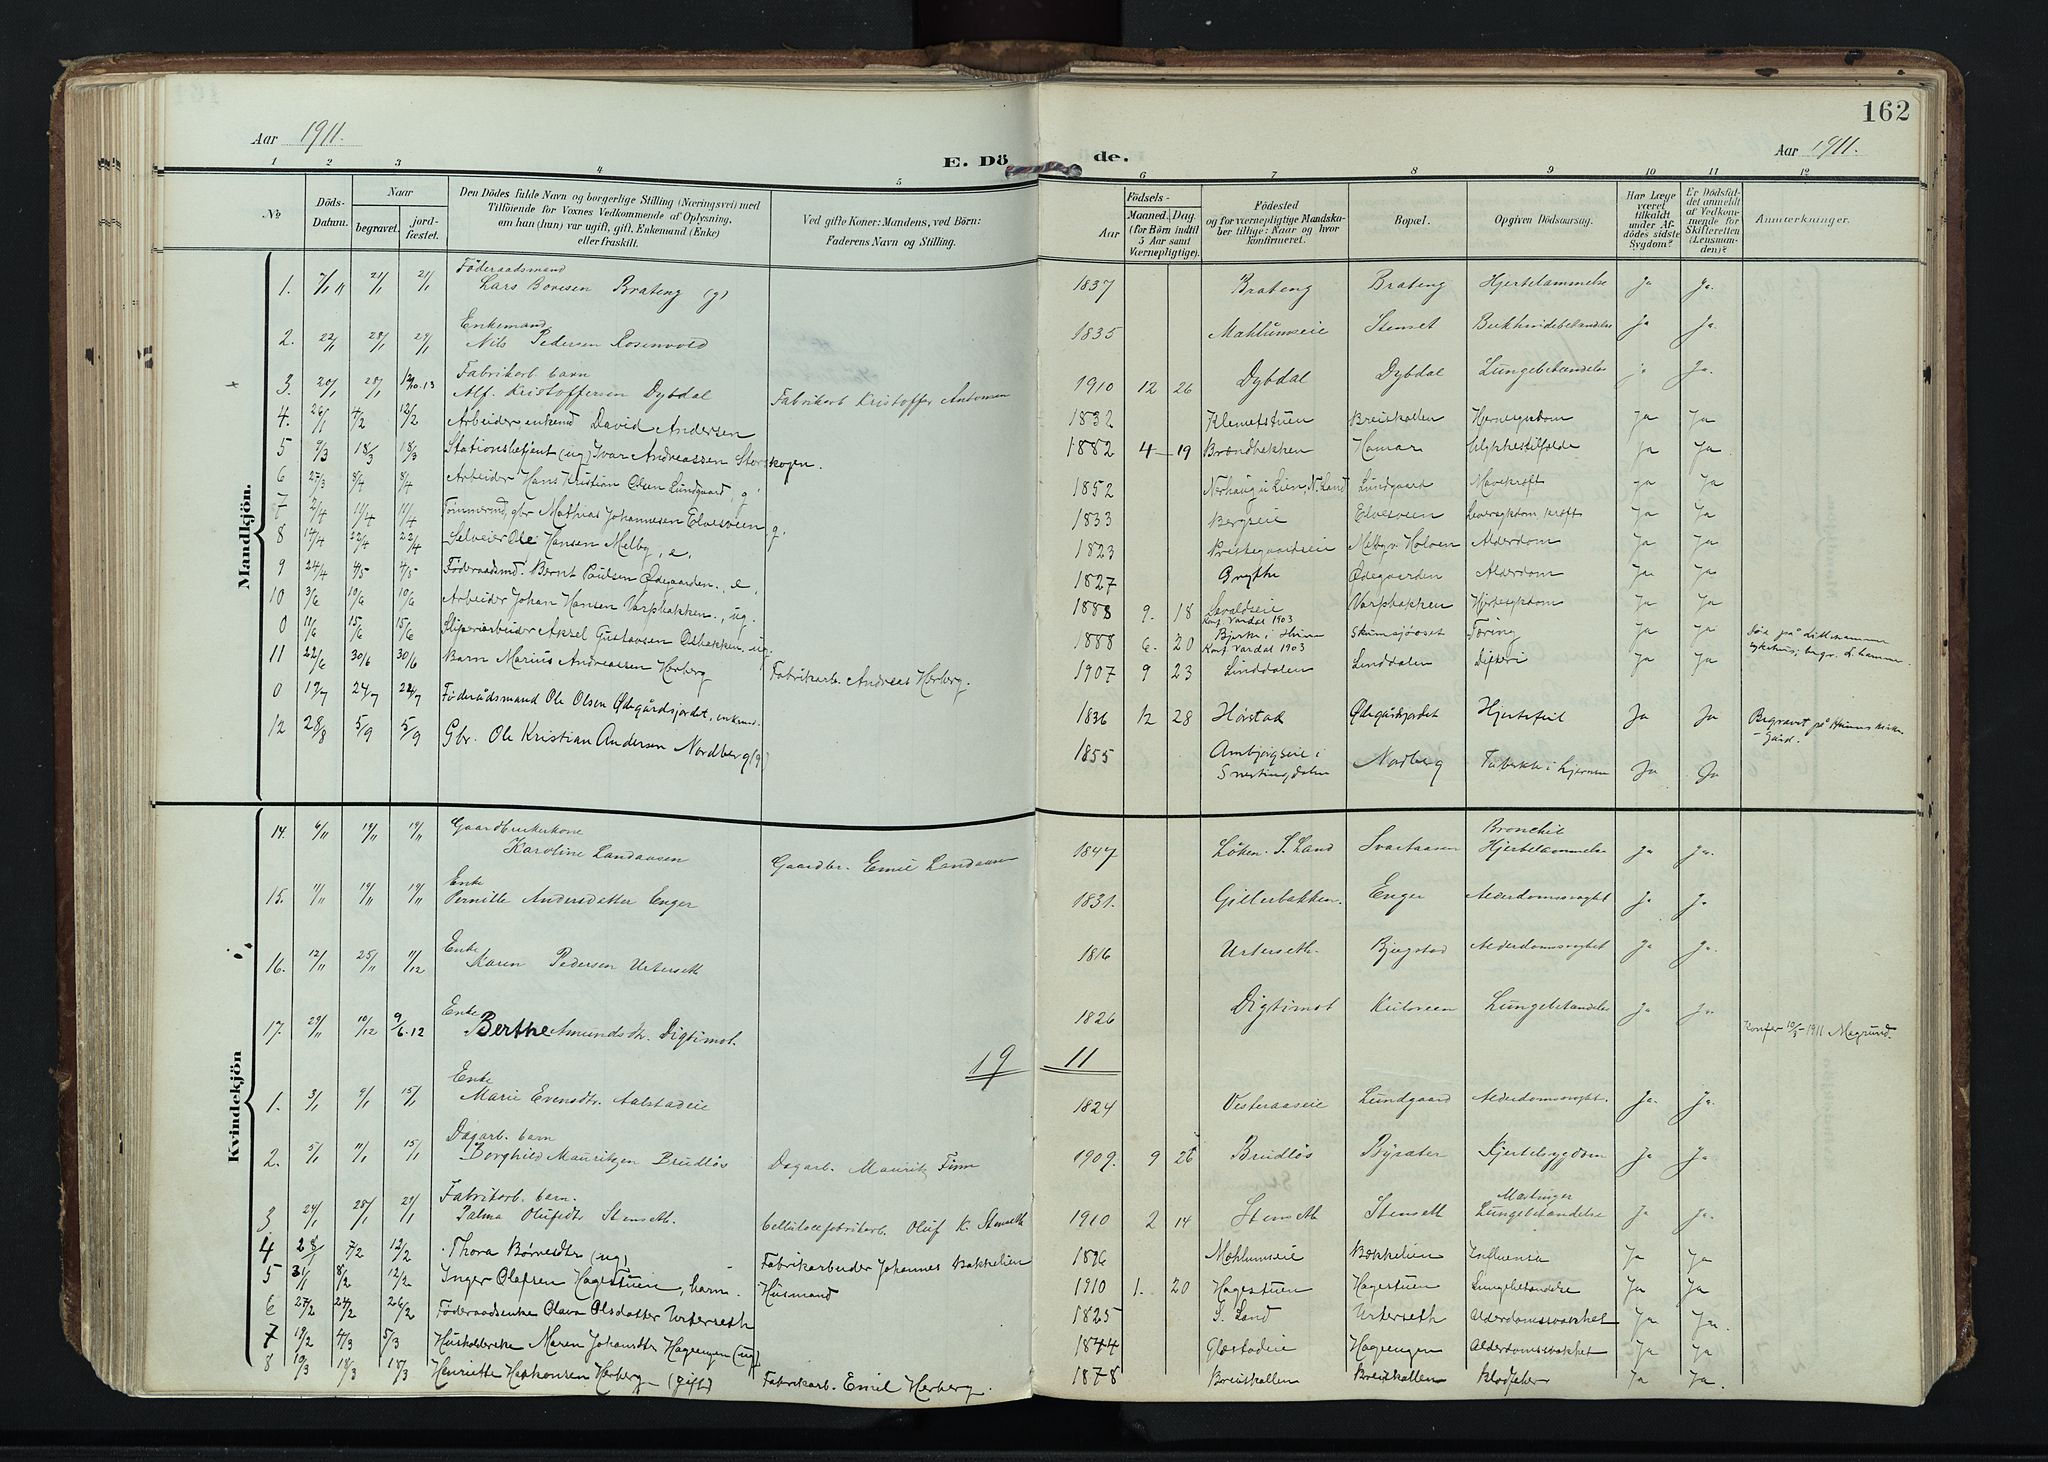 162
Aar 1911.
E. Dö de.
Aar 1911.
1 2 3 4 5 6 7 8 9 10 11 12
No
Döds-Datum.
Naar
begravet.
jord-fæstet.
Den Dödes fulde Navn og borgerlige Stilling (Næringsvei) med
Tilföiende for Voxnes Vedkommende af Oplysning,
om han (hun) var ugift, gift, Enkemand (Enke)
eller fraskilt.
Ved gifte Koner: Mandens, ved Börn:
Faderens Navn og Stilling.
Födsels-
Aar
Maaned. Dag.
(for Börn indtil
5 Aar samt
Værnepligtige).
Födested
og for værnepligtige Mandska-
ber tillige: Naar og hvor
konfirmeret.
Bopæl.
Opgiven Dödsaarsag.
Har Læge
været
tilkaldt
under Af-
dödes sidste
Sygdom?
Er Dödsfal-
det anmeldt
af Vedkom-
mende for
Skifteretten
(Lensman-
den)?
Anmærkninger.
Mandkjön.
1. 7/1 11 21/1 21/1 Föderaadsmand
Lars Boresen Brateng (g) 1837 Brateng Brateng Hjertelammelse Ja Ja.
2. 22/1 28/1 29/1 Enkemand
Nils Pedersen Rosenvold 1835 Mæhlumseie Stenset Ja Ja.
3. 20/1 28/1 12/10.13 Fabrikarb. barn
Alf. Kristoffersen Dybdal Fabrikarb Kristoffer Antonsen 1910 12 26 Dybdal Dybdal Lungebetændelse Ja.
4. 26/1 4/2 12/2 Arbeider, enkemd David Andersen 1832 Klemetstuen Breiskallen Ja Ja
5 9/3 18/3 18/3 Stationsbetjent (ug) Ivar Andreassen Storskogen. 1882 4 19 Brændbakken Hamar Ulykkestilfælde Ja Ja
6 27/3 8/4 8/4 Arbeider Hans Kristian Olsen Lundgaard, g 1852 Nerhaug i Lien, N. Land Lundgaard Mavekræft Ja Ja
7 2/4 11/4 11/4 Tömmermd, gbr Mathias Johannesen Elvesveen, g. 1833 Bergseie Elvesveen Leversykdom kræft Ja Ja
8 14/4 22/4 22/4 Selveier Ole Hansen Melby, e. 1823 Prestegaardseie Melby v. Holven Alderdom Ja Ja
9 24/4 4/5 4/5 Föderaadsmd. Bernt Paulsen Ødegaarden., e. 1827 Ødegaarden Alderdom Ja Ja
10 3/6 10/6 10/6 Arbeider Johan Hansen Varpbakken., ug. 1888 9. 18
Konf. Vardal 1903 Varpbakken Hjertesykdom Ja Ja
0 11/6 15/6 15/6 Sliperiarbeider Aksel Gustavsen Osbakken, ug. 1888 6. 20 Bjerke i Hunn
Konf Vardal 1903 Skumsjøoset Tæring Ja Ja Død på Lillehammer
sykehus; begr. L.hammer.
11 22/6 30/6 30/6 Barn Marius Andreassen Herberg Fabrikarb. Andreas Herberg. 1907 9 23 Linddalen Linddalen Difteri Ja Ja
0 19/7 24/7 24/7 Föderådsmand Ole Olsen Ødegårdsjordet, enkemd. 1836 12 28 Hørstad Ødegårdsjordet Hjertefeil Ja Ja Begravet på Hunns kirke-
gård.
12 28/8 5/9 5/9 Gbr. Ole Kristian Andersen Nordberg (g) 1855 Ambjørgseie i
Snertingdalen Nordberg Tuberkler i hjernen Ja Ja
14. 6/11 14/11 19/11 Gaardbrukerkone
Karoline Landaasen Gaardbr. Emil Landaasen 1847 Løken S. Land Svartaasen Bronchit
Hjertelammelse Ja Ja.
15. 11/11 19/11 19/11 Enke
Pernille Andersdatter Enger 1831. Gillerbakken. Enger Alderdomssvaghet Ja Ja
16. 12/11 25/11 11/12 Enke
Maren Pedersen Urterseth 1816 Urterseth. Bjugstad Alderdomssvaghet Ja Ja.
17. 29/11 10/12 9/6.12 Enke
Berthe Amundsdtr. Digtimot. 1826 Digtimot Lungebetændelse Ja Ja
Konfer 10/3-1911 Mægrund.
19 11
Kvindekjön
1. 3/1 9/1 15/1 Enke
Marie Evensdtr. Aalstadeie 1824 Vesteraaseie Lundgaard Alderdomssvaght. Ja. Ja.
2. 5/1 11/1 15/1 Dagarb. barn
Borghild Mauritzen Brudløs Dagarb. Mauritz Finn 1909. 9 26 Brudløs Byrøter Kjertelsygdom Ja Ja
3. 24/1 28/1 29/1 Fabrikarb. barn.
Palma Olufsdtr Stenseth. Cellulosefabrikarb. Oluf K. Stenseth 1910 2 14 Stenseth Stenseth Mæslinger
Lungebetændelse Ja Ja.
4 28/1 7/2 12/2 Thora Børresdtr (ug) Fabrikarbeider Johannes Bakkelien 1896 Mæhlumseie Bakkelien Influensa Ja Ja
5 31/1 8/2 12/2 Inger Olafsen Hagestuen, barn. Husmand 1910 1. 20 Hagestuen Hagestuen Lungebetændelse Ja Ja
6 17/2 24/2 26/2 Föderaadsenke Olava Olsdatter Urterseth 1825 S. Land Urterseth Alderdomssvakhet Ja Ja.
7 19/2 4/3 5/3 Husholderske Maren Johansdtr Hageengen (ug) 1844 Glæstadeie Hageengen Alderdomssvakhet Ja Ja
8 10/3 18/3 18/3 Henriette Haakonsen Herberg (gift) Fabrikarb. Emil Herberg. 1878 Breiskallen Breiskallen Blodfeber Ja Ja.